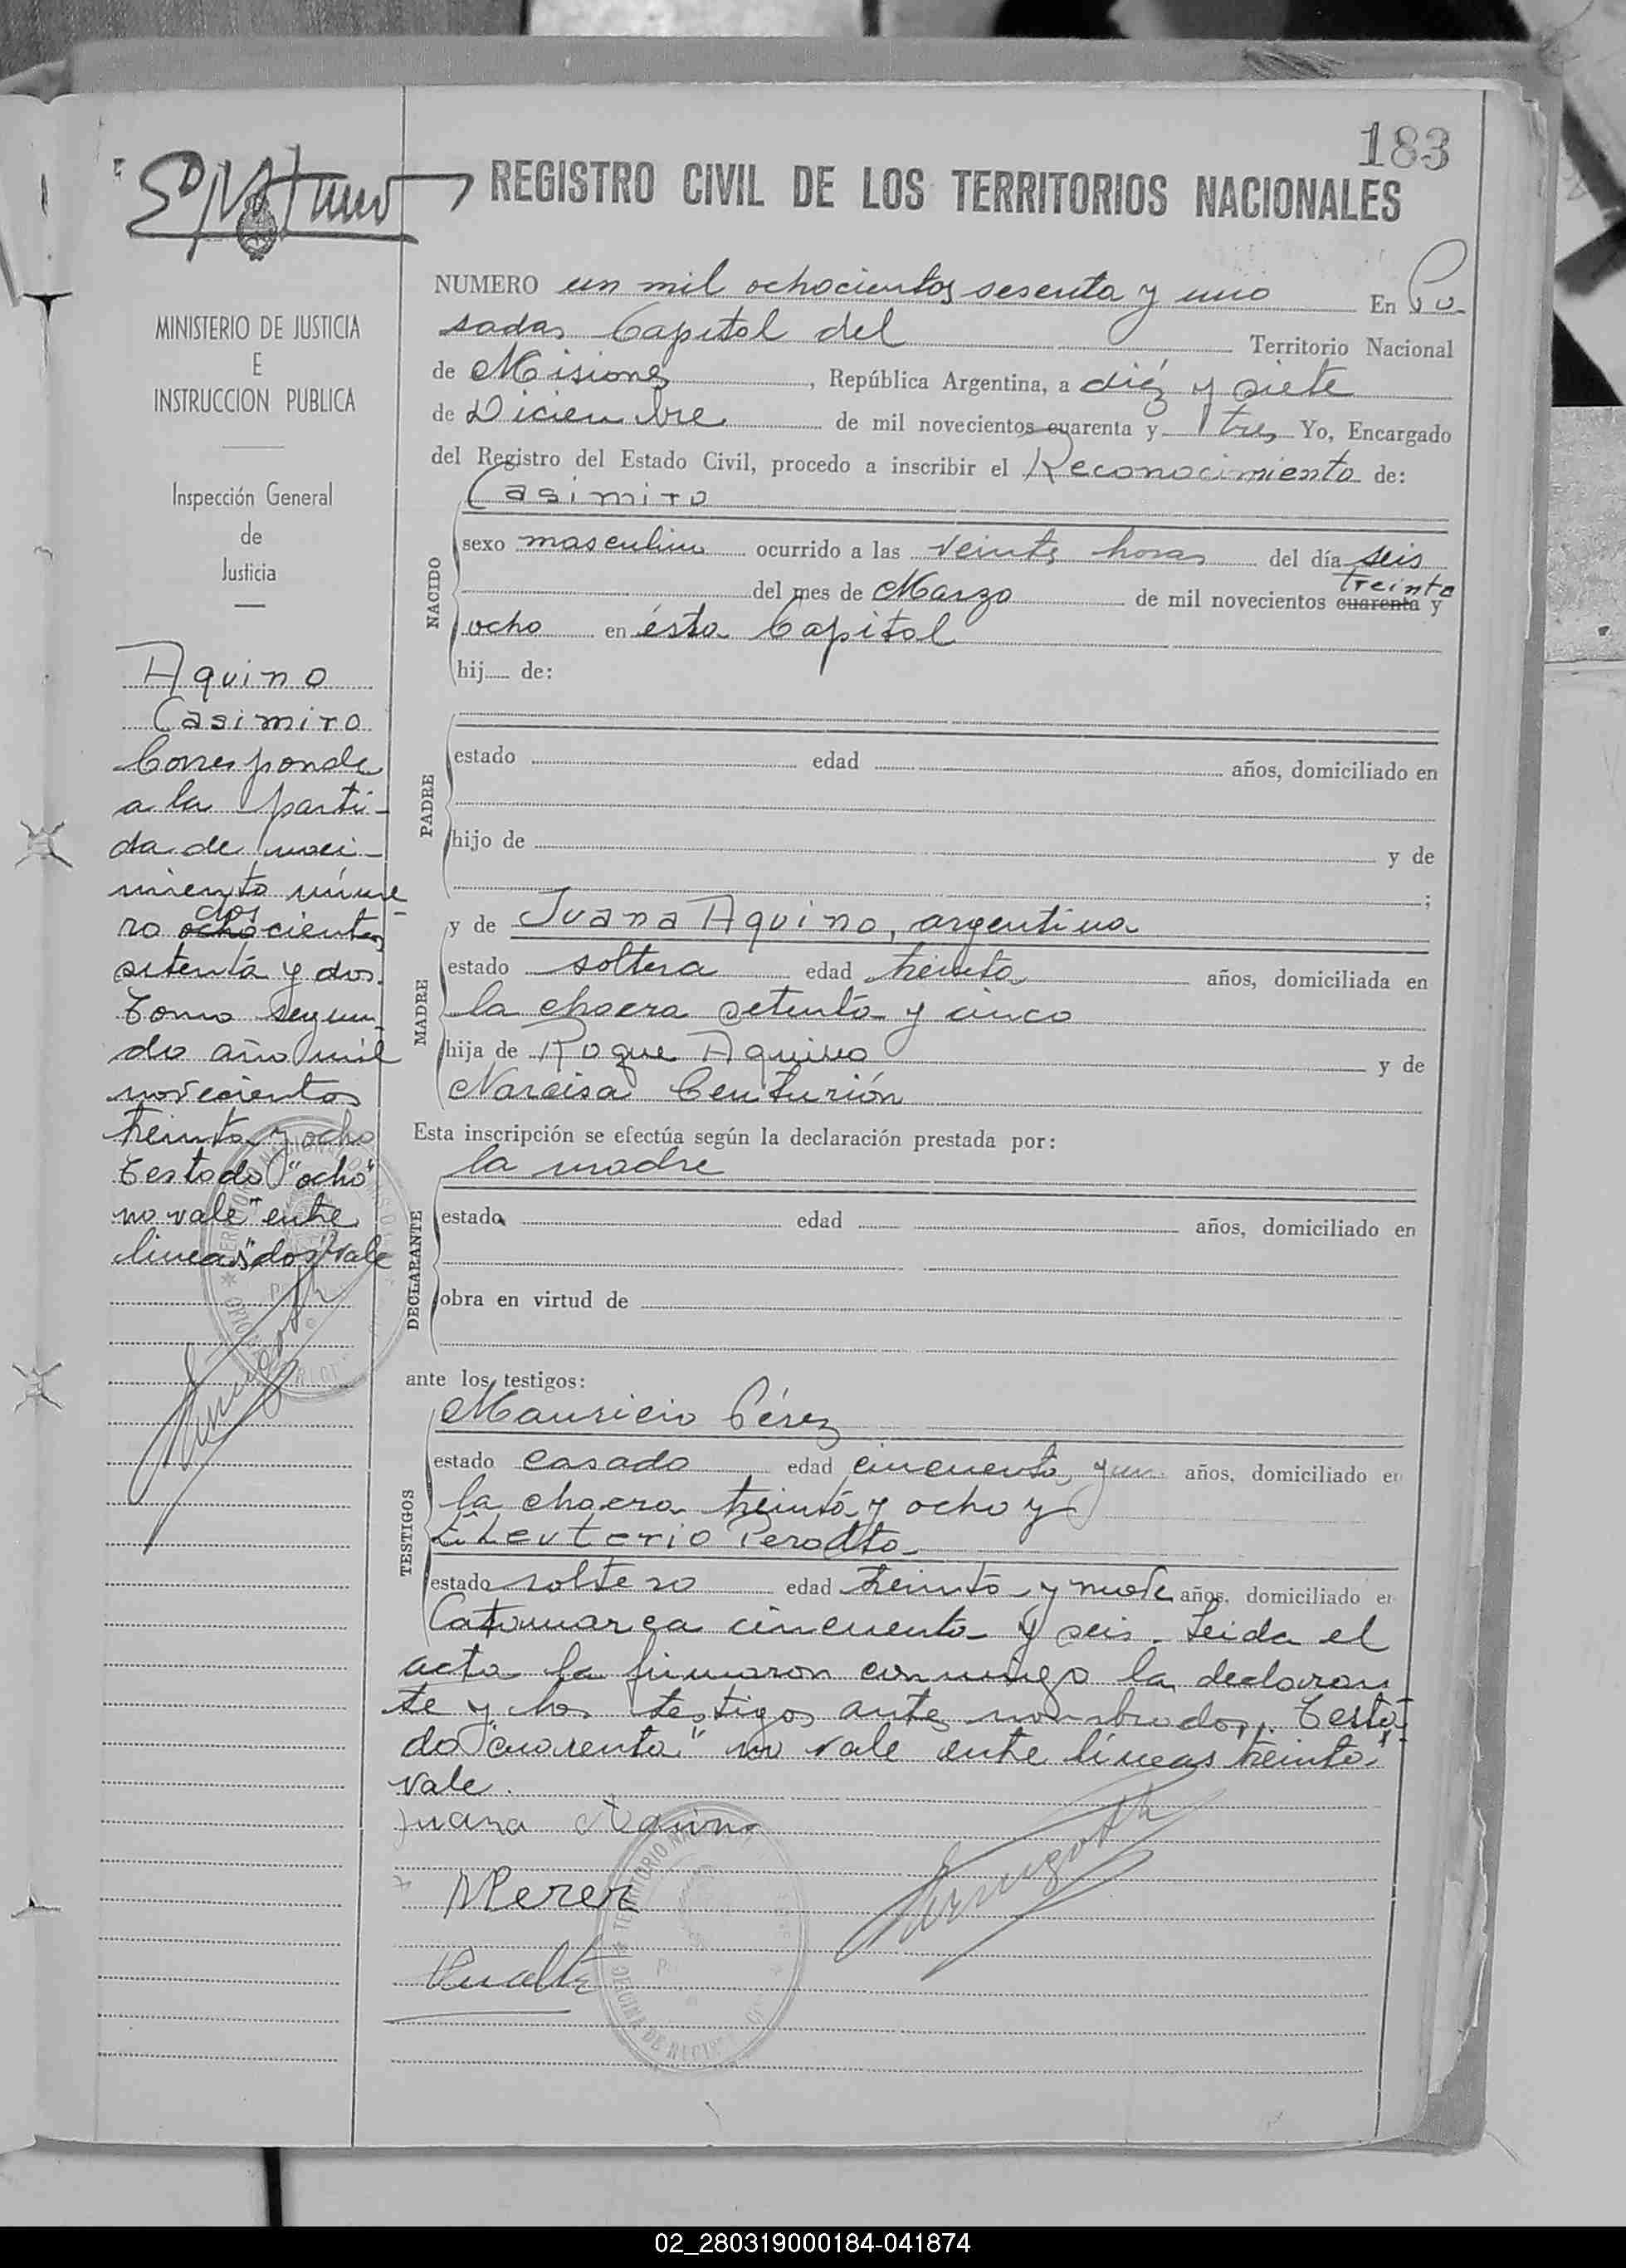 183
REGISTRO CIVIL DE LOS TERRITORIOS NACIONALES
MINISTERIO DE JUSTICIA
E
INSTRUCCION PUBLICA
Inspección General
de
Justicia
Aquino
Casimiro
Corresponde
a la parti-
da de naci-
miento núme-
ro ochocientos
dos
setenta y dos.
Tomo segun-
do año mil
novecientos
treinta y ocho
Testado "ocho"
no vale "entre
lineas" dos "vale
NUMERO un mil ochocientos sesenta y uno En Po-
sadas Capital del Territorio Nacional
de Misiones, República Argentina, a diéz y siete
de Diciembre de mil novecientos cuarenta y tres Yo, Encargado
del Registro del Estado Civil, procedo a inscribir el Reconocimiento de:
Casimiro
NACIDO
sexo masculino ocurrido a las veinte horas del día seis
del mes de Marzo de mil novecientos cuarenta y
treinta
ocho en ésta Capital
hij de:
PADRE
estado edad años, domiciliado en
hijo de y de
;
MADRE
y de Juana Aquino, argentina
estado soltera edad treinta años, domiciliada en
la chacra setenta y cinco
hija de Roque Aquino y de
Narcisa Centurión
Esta inscripción se efectúa según la declaración prestada por:
la madre
DECLARANTE
estado edad años, domiciliado en
obra en virtud de
ante los testigos:
TESTIGOS
Mauricio Pérez
estado casado edad cincuenta y un años, domiciliado en
la chacra treinta y ocho y
Eleuterio Peralta
estado soltero edad treinta y nueve años, domiciliado en
Catamarca cincuenta y seis. Leida el
acta la firmaron conmigo la declaran
te y los testigos antes nombrados. Testa-
do "cuarenta" no vale entre líneas treinta"
vale.
Juana Aquino
MPerez
Peralta
02_280319000184-041874